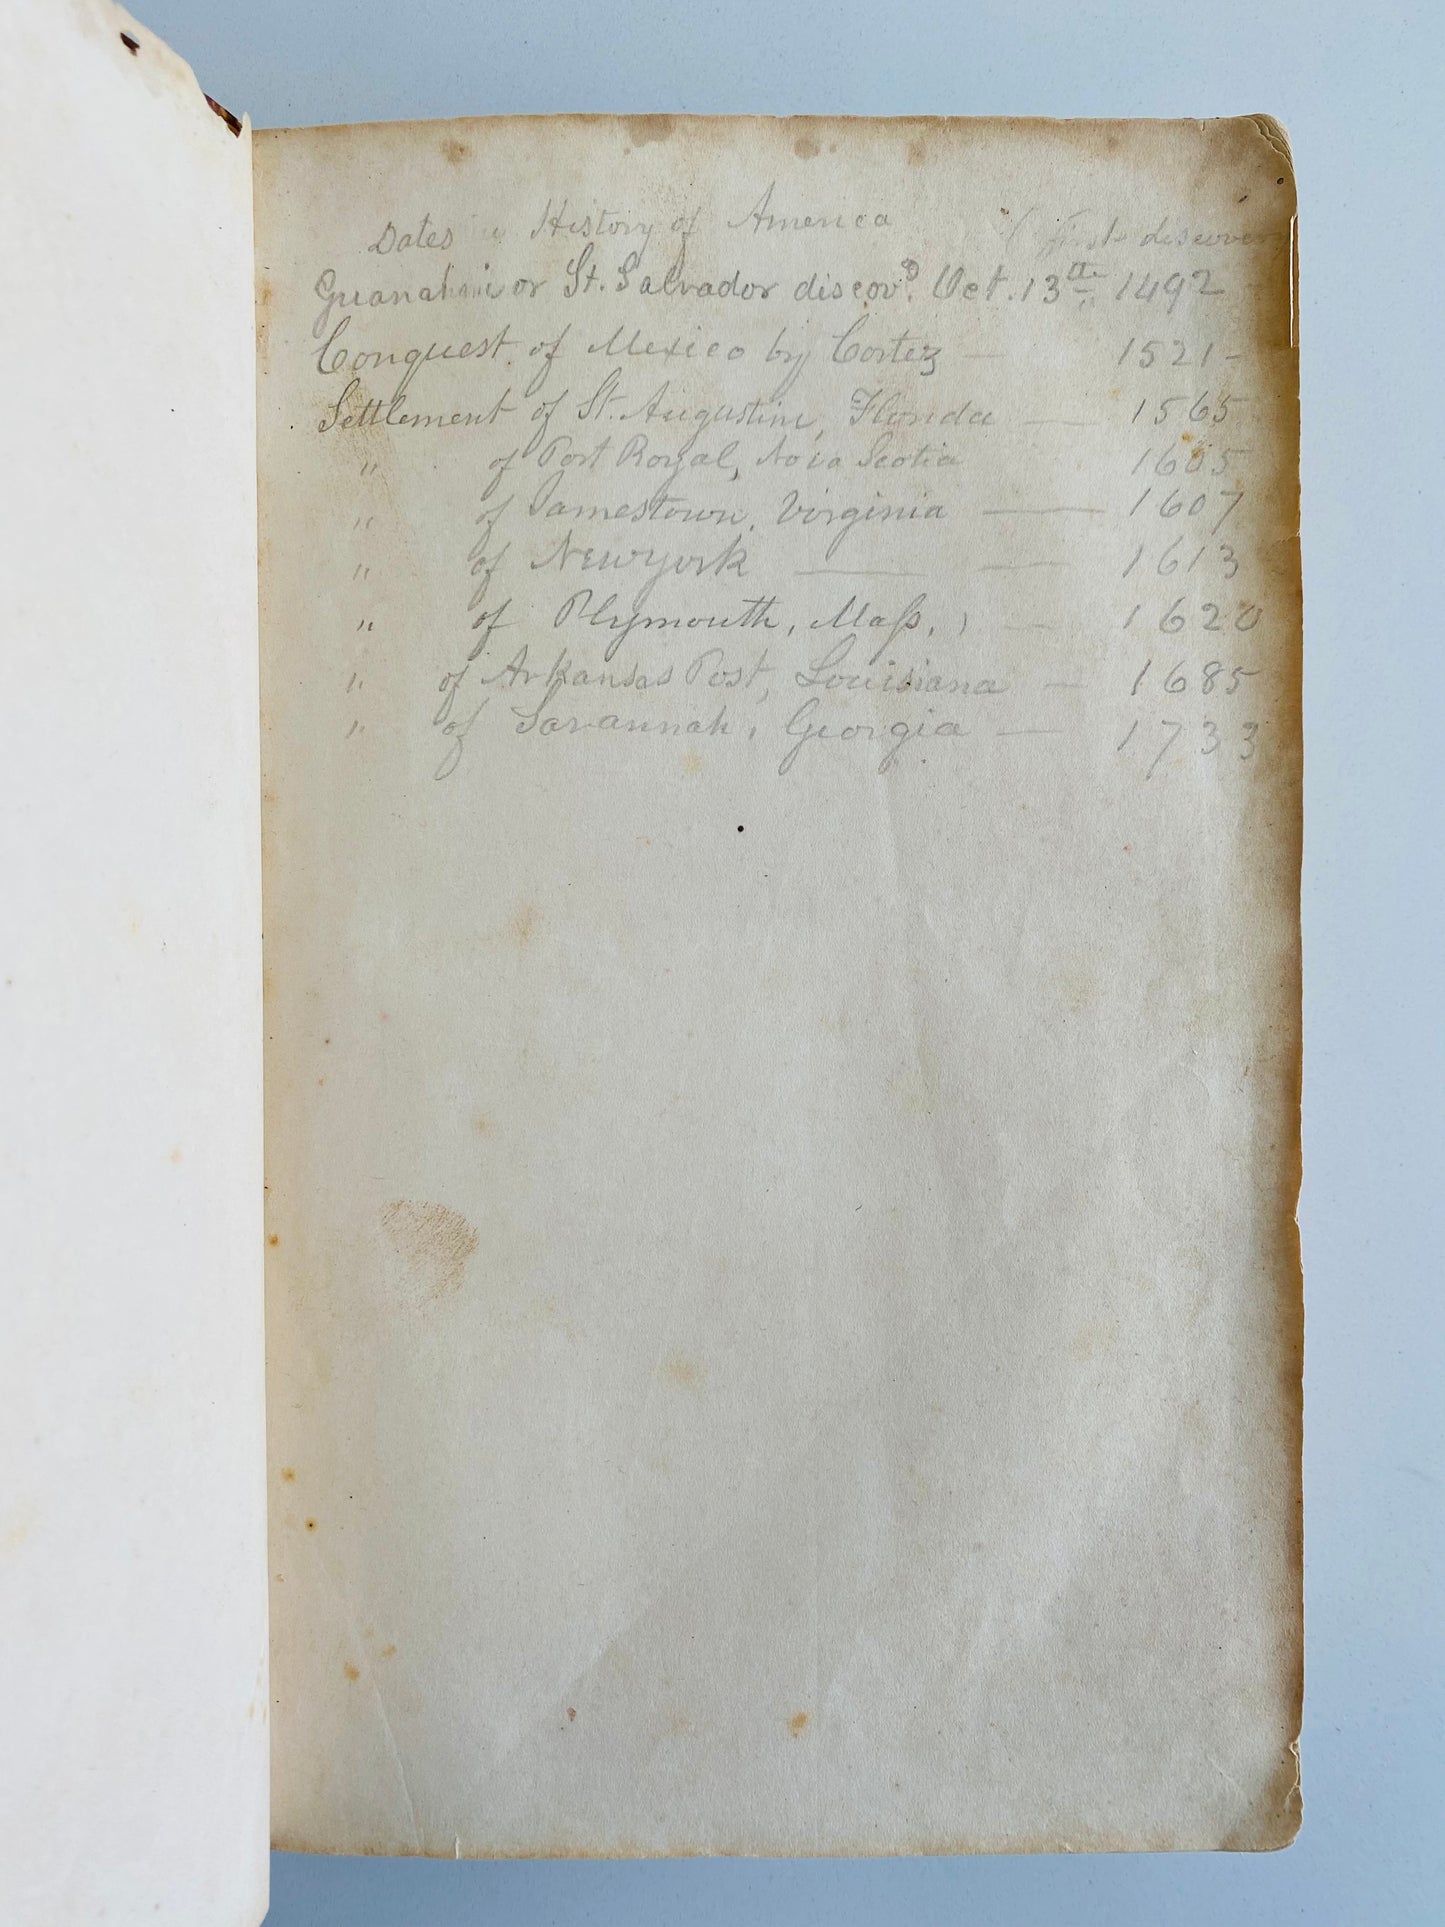 Dates in History of America ( first discover
Guanahani or St. Salvador discov.ᴰ Oct. 13th 1492
Conquest of Mexico by Cortez — 1521 -
Settlement of St. Augustine, Florida — 1565
" of Port Royal, Nova Scotia 1605
" of Jamestown, Virginia — 1607
" of Newyork — — 1613
" of Plymouth, Maſs, ) — 1620
" of Arkansas Post, Louisiana — 1685
" of Savannah, Georgia — 1733